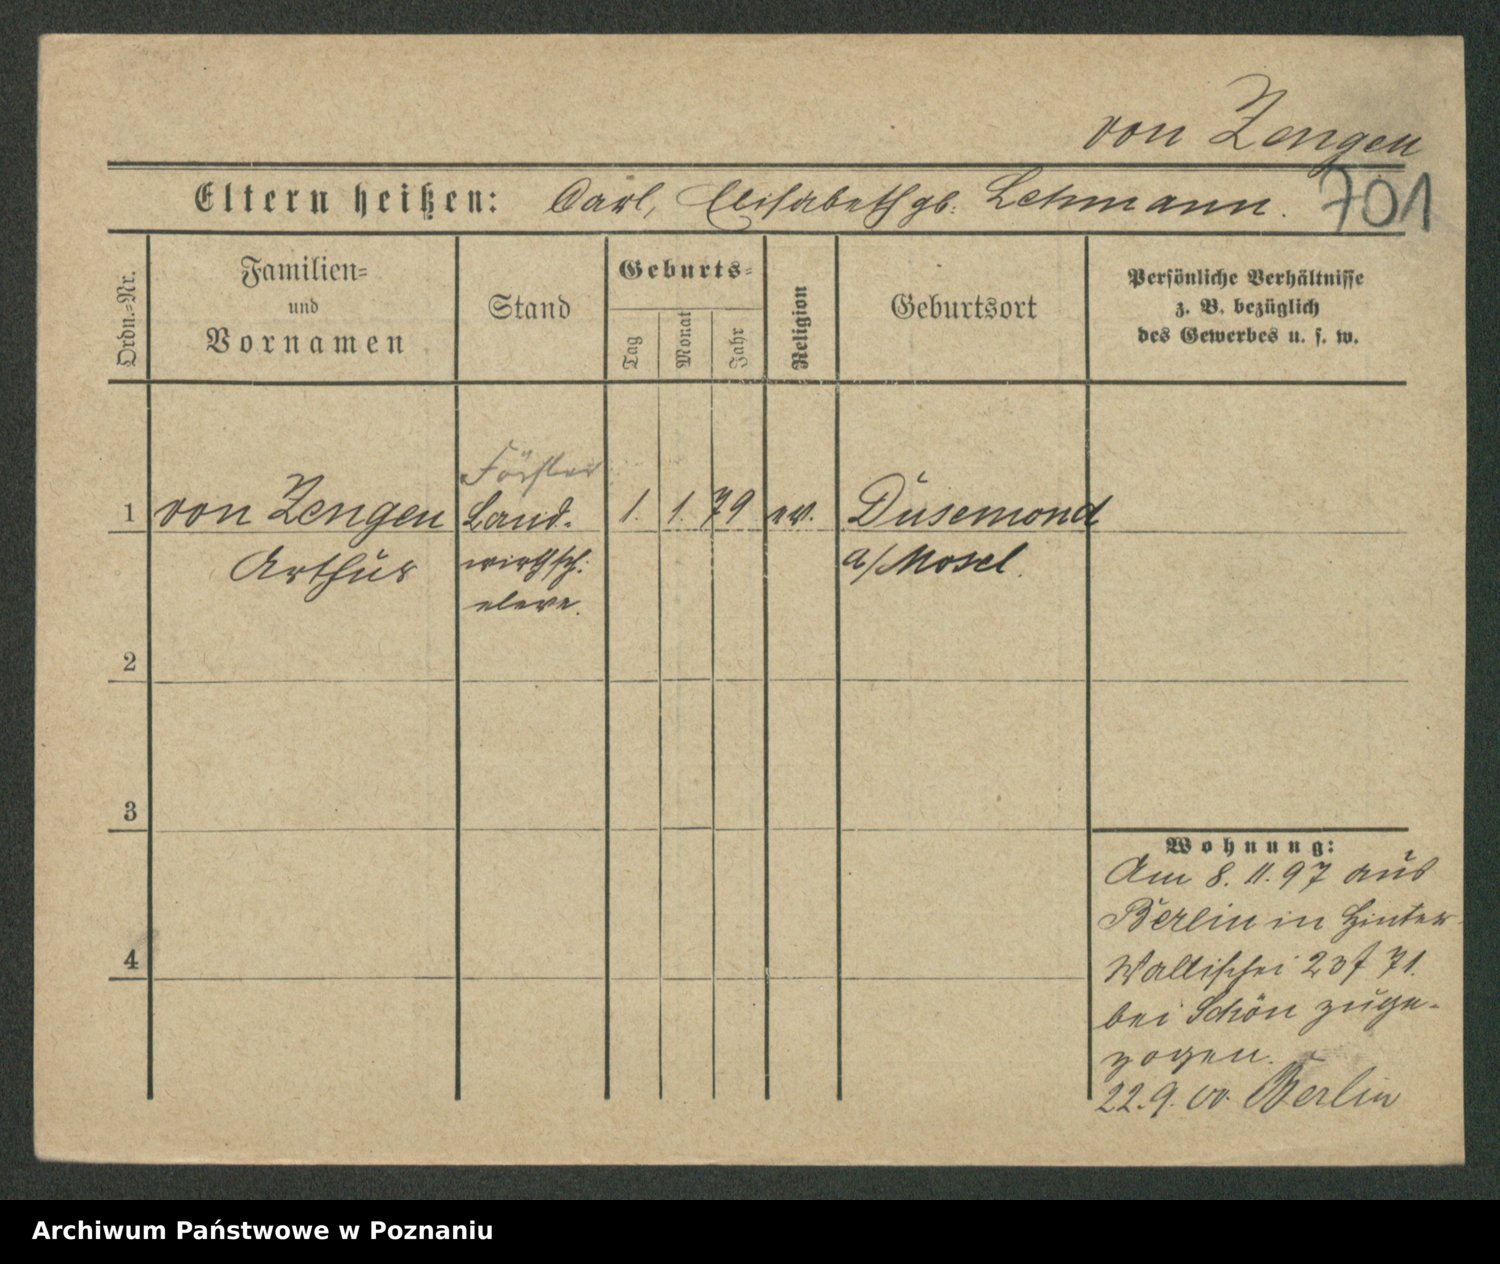 von Zengen
701
Eltern heißen: Carl, Elisabeth gb. Lehmann.
Ordn.-Nr.
Familien-
und
Vornamen
Stand
Geburts-
Tag
Monat
Jahr
Religion
Geburtsort
Persönliche Verhältnisse
z. B. bezüglich
des Gewerbes u. s. w.
Förster
1 von Zengen Land- 1. 1. 79 ev. Dusemond
Arthur wirthsch. a/Mosel.
eleve.
2
3
4
Wohnung:
Am 8. 11. 97 aus
Berlin in Hinter
Wallischei 71.
bei Schön zuge-
zogen.
22. 9. 00. Berlin
Archiwum Państwowe w Poznaniu